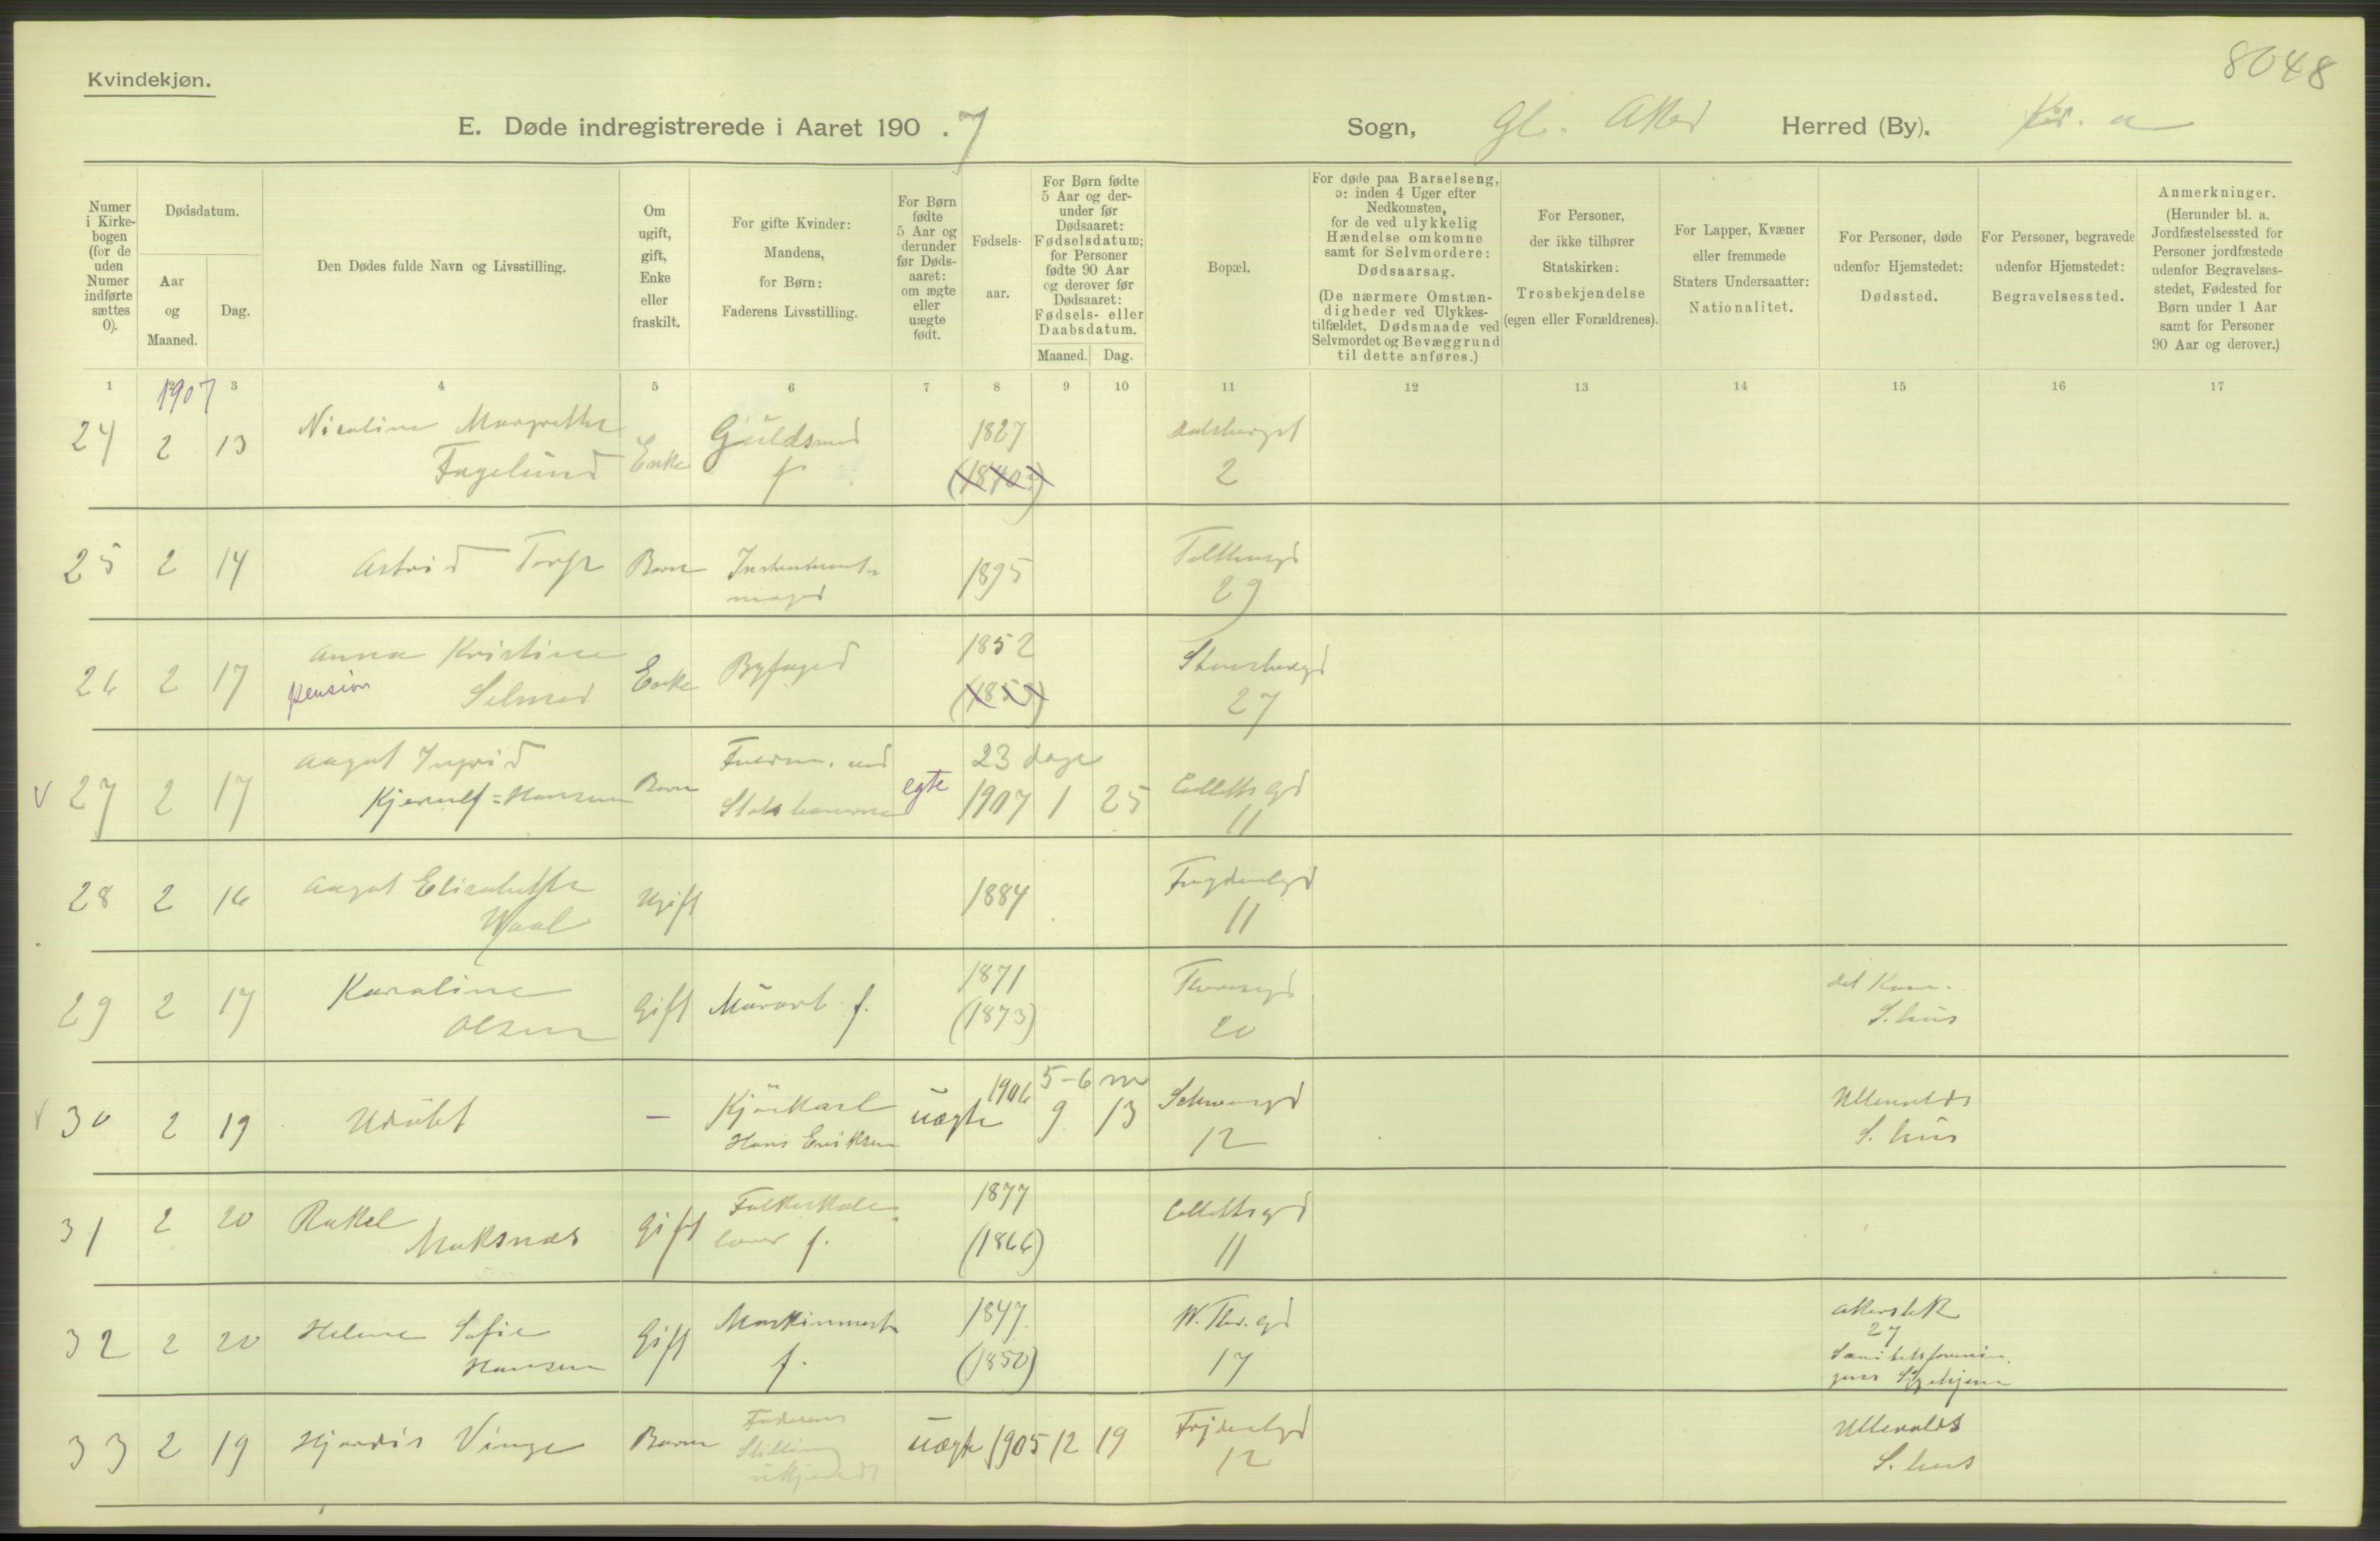 8048
Kvindekjøn.
E. Døde indregistrerede i Aaret 190 . 7 Sogn, Gl. Aker Herred (By). Kr. a
Numer i Kirkebogen (for de uden Numer indførte sættes 0).
Dødsdatum.
Aar og Maaned.
Dag.
Den Dødes fulde Navn og Livsstilling.
Om ugift, gift, Enke eller fraskilt.
For gifte Kvinder: Mandens, for Børn: Faderens Livsstilling.
For Børn fødte 5 Aar og derunder før Dødsaaret: om ægte eller uægte født.
Fødselsaar.
For Børn fødte 5 Aar og derunder før Dødsaaret: Fødselsdatum; for Personer fødte 90 Aar og derover før Dødsaaret: Fødsels- eller Daabsdatum.
Maaned. Dag.
Bopæl.
For døde paa Barselseng, ɔ: inden 4 Uger efter Nedkomsten, for de ved ulykkelig Hændelse omkomne samt for Selvmordere: Dødsaarsag.
(De nærmere Omstændigheder ved Ulykkestilfældet, Dødsmaade ved Selvmordet og Bevæggrund til dette anføres.)
For Personer, der ikke tilhører Statskirken: Trosbekjendelse (egen eller Forældrenes).
For Lapper, Kvæner eller fremmede Staters Undersaatter: Nationalitet.
For Personer, døde udenfor Hjemstedet: Dødssted.
For Personer, begravede udenfor Hjemstedet: Begravelsessted.
Anmerkninger. (Herunder bl. a. Jordfæstelsessted for Personer jordfæstede udenfor Begravelsesstedet, Fødested for Børn under 1 Aar samt for Personer 90 Aar og derover.)
1 3 4 5 6 7 8 9 10 11 12 13 14 15 16 17
1907
24 2 13 Nicoline Margrethe Enke Guldsmed 1827
Fagelund f. (1840) 2
25 2 14 Astrid Torp Barn Instrument- 1895
mager 29
26 2 17 Anna Kristine Enke Byfoged 1852
pension Selmer (1853) 27
V 27 2 17 Aagot Ingrid Barn 23 dage
Kjerulf=Hansen egte 1907 1 25 Collettsgd
Statsbanerne 11
28 2 16 Aagot Elisabeth Ugift 1884 Frydenlgd
Waal 11
29 2 17 Karoline Gift Murarb. f. 1871 Theresegd Det Kom.
Olsen (1873) 20 S.hus
V 30 2 19 Udøbt — Kjørkarl uægte 1906 5-6 m 9 13 Schwensgd Ullevolds
Hans Eriksen 12 S. hus
31 2 20 Rakel Gift Folkeskole- 1877 Collettsgd
Moksnes lærer f. (1866) 11
32 2 20 Helene Sofie Gift Maskinmest. 1847 W. Thr. gd
Hansen f. (1850) 17
27
33 2 19 Hjørdis Vinge Barn Faderens uægte 1905 12 19 Frydenlgd Ullevolds
Stilling 12 S. hus
ukjendt